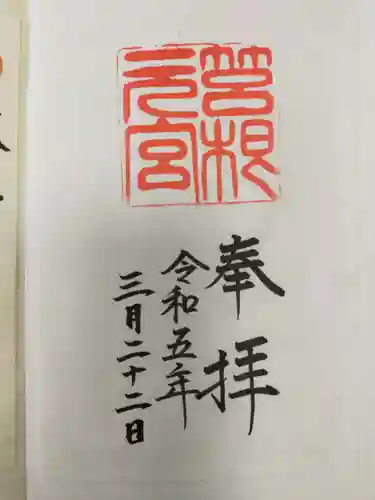 筥根
元宮
奉拝
令和五年
三月二十二日